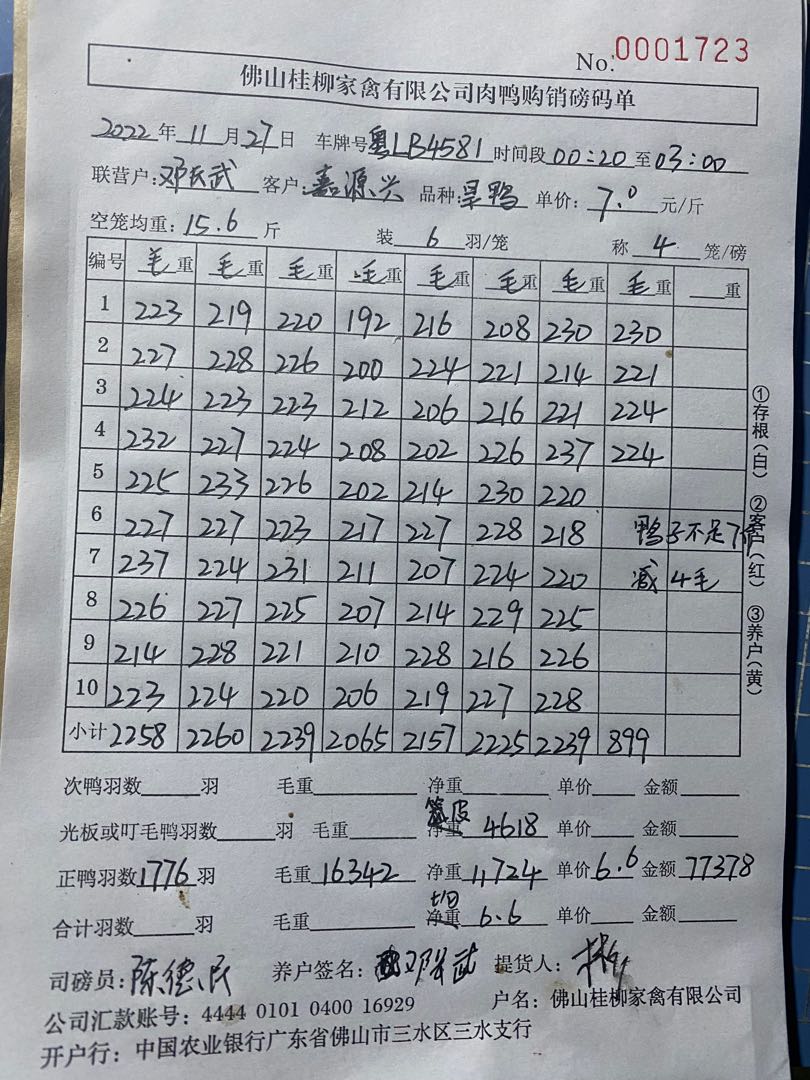 No: 0001723
佛山桂柳家禽有限公司肉鸭购销磅码单
2022年11月27日 车牌号粤LB4581 时间段00:20至03:00
联营户:邓兵武 客户:嘉源兴 品种:旱鸭 单价:7.0元/斤
空笼均重:15.6斤 装6羽/笼 称4笼/磅
编号 毛重 毛重 毛重 毛重 毛重 毛重 毛重 毛重 重
1 223 219 220 192 216 208 230 230
2 227 228 226 200 224 221 214 221
3 224 223 223 212 206 216 221 224
4 232 227 224 208 202 226 237 224
5 225 233 226 202 214 230 220
6 227 227 223 217 227 228 218 鸭子不足7斤
7 237 224 231 211 207 224 220 减4毛
8 226 227 225 207 214 229 225
9 214 228 221 210 228 216 226
10 223 224 220 206 219 227 228
小计 2258 2260 2239 2065 2157 2225 2239 899
①存根(白) ②客户(红) ③养户(黄)
次鸭羽数 羽 毛重 净重 单价 金额
光板或叮毛鸭羽数 羽 毛重 净重 4618 单价 金额
正鸭羽数1776羽 毛重16342 净重11724 单价6.6 金额77378
合计羽数 羽 毛重 净重 均 6.6 单价 金额
司磅员:陈德民 养户签名:邓兵武 提货人:
公司汇款账号:4444 0101 0400 16929 户名:佛山桂柳家禽有限公司
开户行:中国农业银行广东省佛山市三水区三水支行